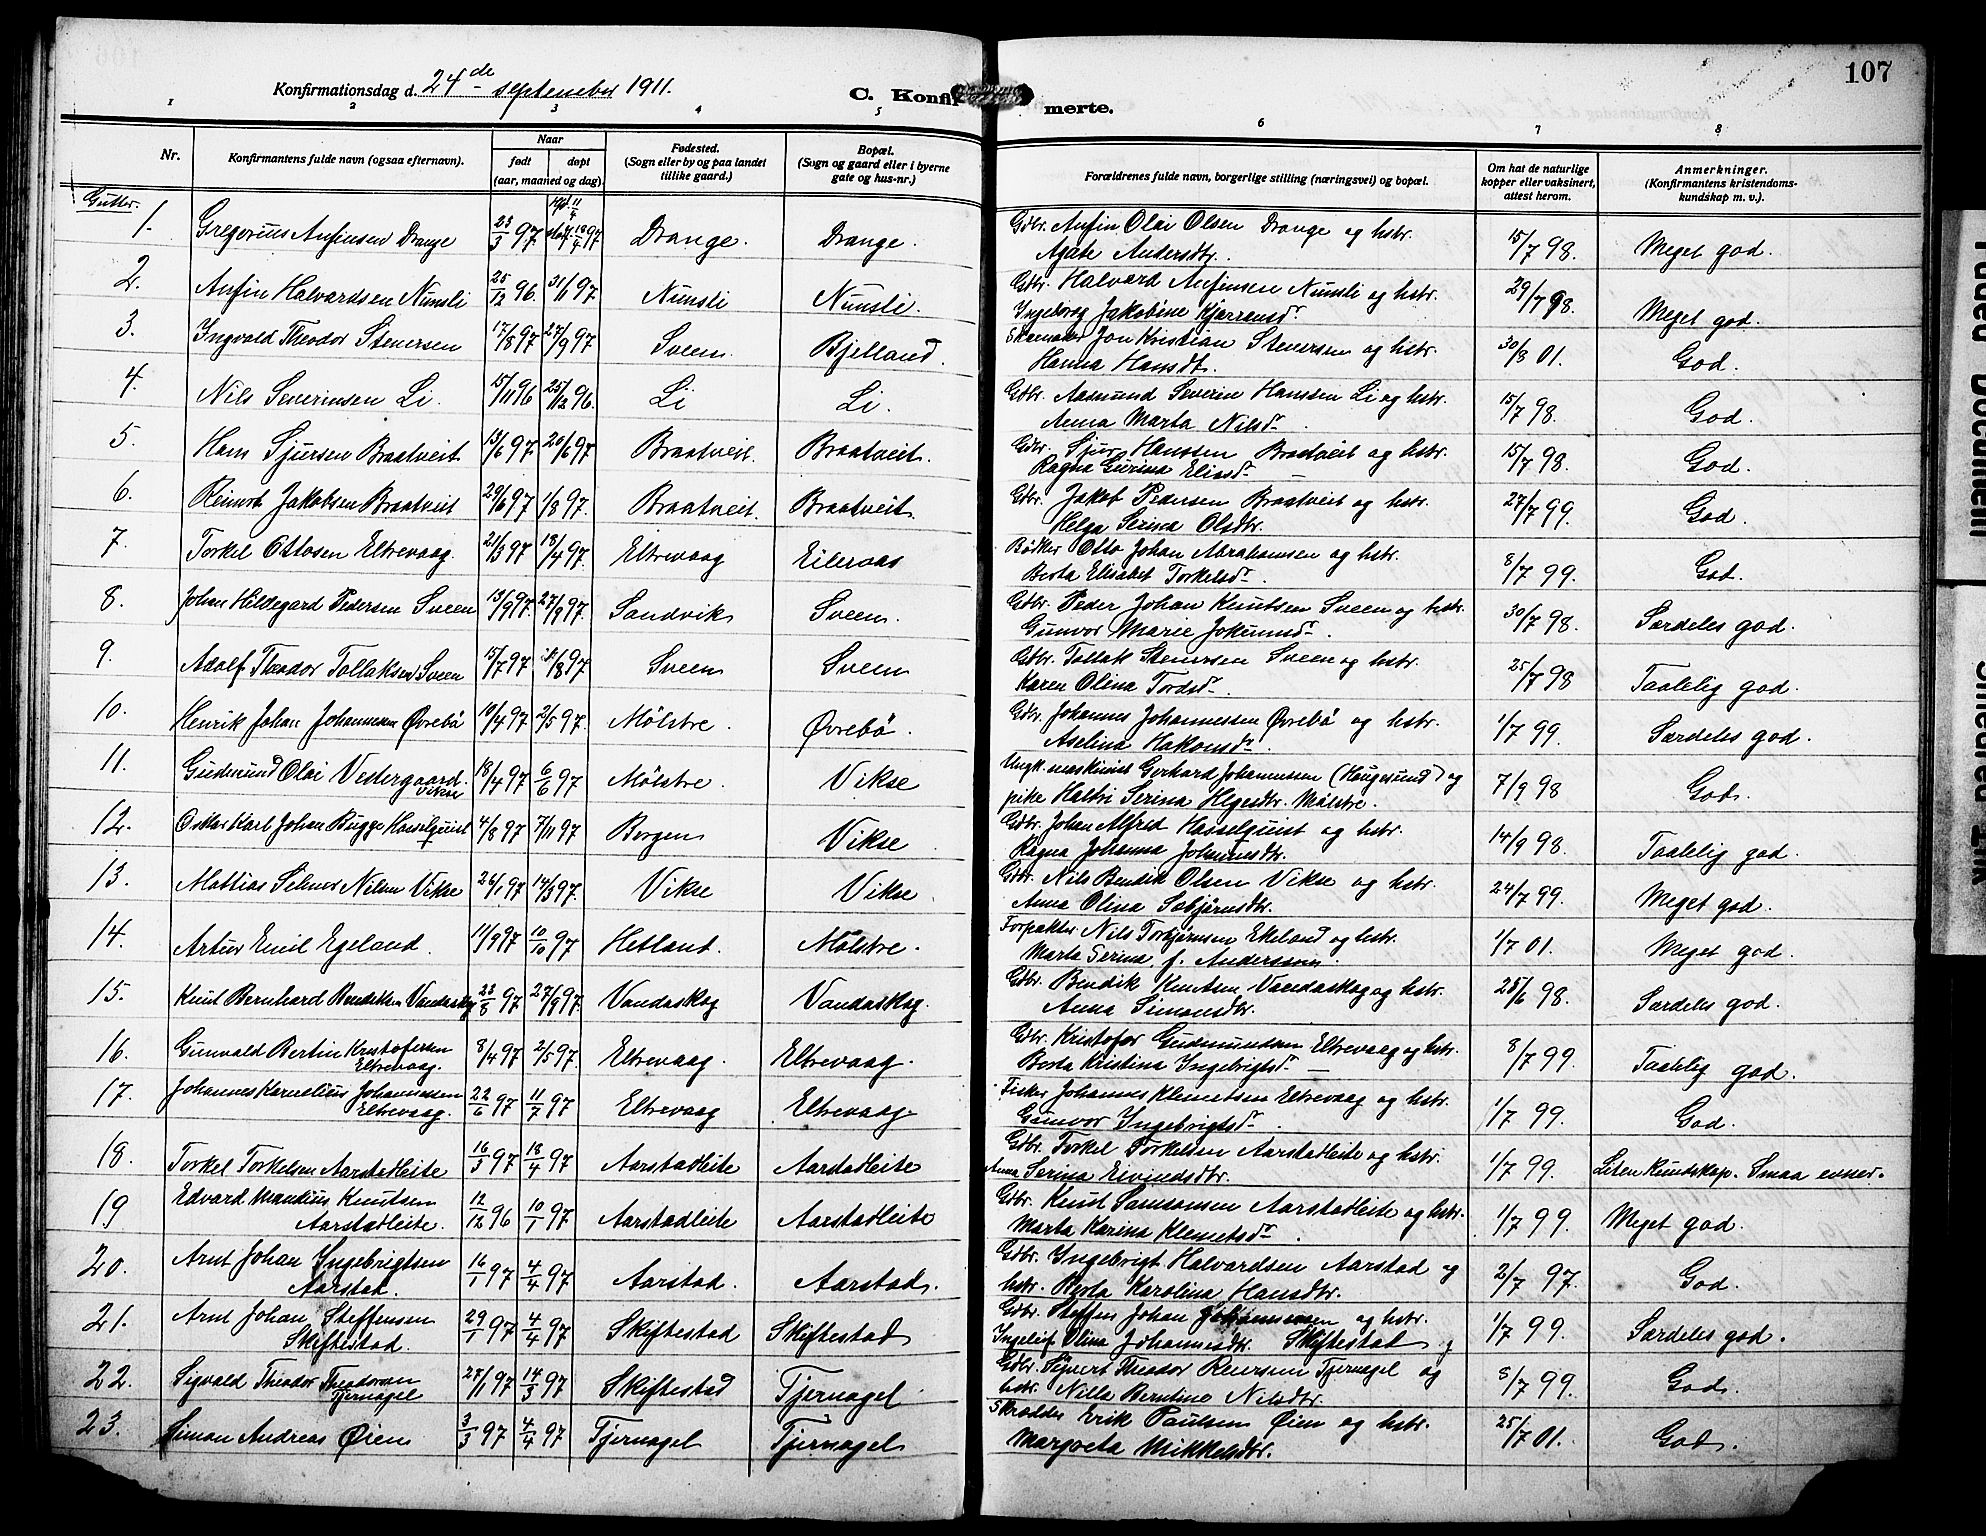 107
Konfirmationsdag d. 24de september 1911.
C. Konfirmerte.
1 2 3 4 5 6 7 8
Nr.
Konfirmantens fulde navn (ogsaa efternavn).
Naar
født
døpt
(aar, maaned og dag).
Fødested.
(Sogn eller by og paa landet
tillike gaard.)
Bopæl.
(Sogn og gaard eller i byerne
gate og hus-nr.)
Forældrenes fulde navn, borgerlige stilling (næringsvei) og bopæl.
Om hat de naturlige
kopper eller vaksinert,
attest herom.
Anmerkninger.
(Konfirmantens kristendoms-
kundskap m. v.).
Gutter.
1. Gregorius Anfinsen Drange 23/3 97 11/4 18/4 97 Drange. Drange. Gdbr. Anfin Olai Olsen Drange og hstr. Agate Andersdtr. 15/7 98. Meget god.
2. Anfin Halvardsen Nunsli 25/12 96. 31/1 97. Nunsli Nunsli. Gdbr. Halvard Anfinsen Nunsli og hstr. Ingeborg Jakobine 29/7 98. Meget god.
3. Ingvald Theodor Stenersen 17/8 97 27/9 97 Sveen. Bjelland. Skomaker Jon Kristian Stenersen og hstr. Hanna Hansdt. 30/8 01. God.
4. Nils Severinsen Li. 15/11 96 25/12 96. Li Li. Gdbr. Aamund Severin Hanssen Li og hstr. Anna Marta Nilsdr. 15/7 98. God.
5. Hans Sjursen Braatveit 13/6 97 20/6 97 Braatveit. Braatveit. Gdbr. Sjur Hanssen Braatveit og hstr. Ragna Gurina Eliasdr. 15/7 98. God.
6. Reinert Jakobsen Braatveit 29/6 97 1/8 97. Braatveit. Braatveit. Gdbr. Jakob Pedersen Braatveit og hstr. Helga Serina Olsdtr. 27/7 99. God.
7. Torkel Ottosen Eltrevaag. 21/3 97 18/4 97. Eltrevaag Eilervaas Bødker Otto Johan Abrahamsen og hstr. Berta Elisabet Torkelsdr. 8/7 99. God.
8. Johan Hildegard Pedersen Sveen 13/9 97. 27/9 97. Sandvik Sveen. Gdbr. Peder Johan Knutsen Sveen og hstr. Gunvor Marie Jokumsdr. 30/7 98. Særdeles god.
9. Adolf Theodor Tollaksen Sveen 15/7 97 /8 97 Sveen Sveen Gdbr. Tollak Stenersen Sveen og hstr. Karen Olina Tordsdr. 25/7 98 Taalelig god.
10. Henrik Johan Johannessen Øvrebö 10/4 97 2/5 97. Mølstre. Øvrebö. Gdbr. Johannes Johannessen Øvrebö og hstr. Aselina Hakonsdr. 1/7 99. Særdeles god.
11. Gudmund Olai Vestergaard. Vikse 18/4 97 6/6 97 Mølstre. Vikse Ungk. maskinist Gerhard Johannessen (Haugesund) og pike Halbri Serina Hegesdtr. Mølstre. 7/9 98 God.
12. Oskar Karl Johan Bugge Hasselquist 4/8 97 7/11 97 Borgen Vikse Gdbr. Johan Alfred Hasselquist og hstr. Ragna Johanna Johannsdtr. 14/9 98. Taalelig god.
13. Mattias Selmer Nilsen Vikse 24/1 97 14/3 97. Vikse Vikse Gdbr. Nils Bendik Olsen Vikse og hstr. Anna Olina Sebjörnsdtr. 24/7 99. Meget god.
14. Artur Emil Egeland. 11/9 97 10/10 97 Hetland. Mølstre. Forpakter Nils Torbjørnsen Ekeland og hstr. Marta Serina f. Anderssen. 1/7 01. Meget god.
15. Knut Bernhard Bendiksen Vandaskog 23/8 97 27/9 97. Vandaskog Vandaskog. Gdbr. Bendik Knutsen Vandaskog og hstr. Anna Simonsdtr. 28/6 98. Særdeles god.
16. Gunvald Bertin Kristofersen Eltrevaag. 8/4 97 2/5 97. Eltrevaag. Eltrevaag. Gdbr. Kristofer Gudmundsen Eltrevaag og hstr. Berta Kristina Ingebrigtsdr. 8/7 99. Taalelig god.
17. Johannes Kornelius Johannessen Eltrevaag. 22/6 97 11/7 97 Eltrevaag Eltrevaag Fisker Johannes Klemetsen Eltrevaag og hstr. Gunvor Ingebrigtsdr. 1/7 99. God.
18. Torkel Torkelsen Aarstadleite 16/3 97 18/4 97 Aarstadleite Aarstadleite Gdbr. Torkel Torkelsen Aarstadleite og hstr. Anna Serina Eivindsdtr. 1/7 99. Liten kundskap. Smaa evner.
19 Edvard Mandius Knutsen Aarstadleite. 12/12 96 10/1 97. Aarstadleite Aarstadleite Gdbr. Knut Samsonsen Aarstadleite og hstr. Marta Karina Klemetsdr. 1/7 99. Meget god.
20. Arnt Johan Ingebrigtsen Aarstad. 16/1 97 4/4 97 Aarstad. Aarstad. Gdbr. Ingebrigt Halvardsen Aarstad og hstr. Berta Karolina Hansdtr. 2/7 97. God.
21. Arnt Johan Steffensen Skiftestad. 29/1 97 4/4 97 Skiftestad Skiftestad Gdbr. Steffen Johan Johannessen og hstr. Ingeleif Olina Johannesdtr. Skiftestad 1/7 99. Særdeles god.
22. Sigvald Theodor Theodorsen Tjernagel 27/1 97 14/3 97 Skiftestad Tjernagel Gdbr. Sivert Theodor Reiersen Tjernagel og hstr. Nilla Bertine Nilsdtr. 8/7 99. God.
23. Simon Andreas Øien 3/3 97 4/4 97 Tjernagel Tjernagel Skrædder Erik Paulsen Øien og hstr. Margreta Mikkelsdtr. 25/7 01. God.